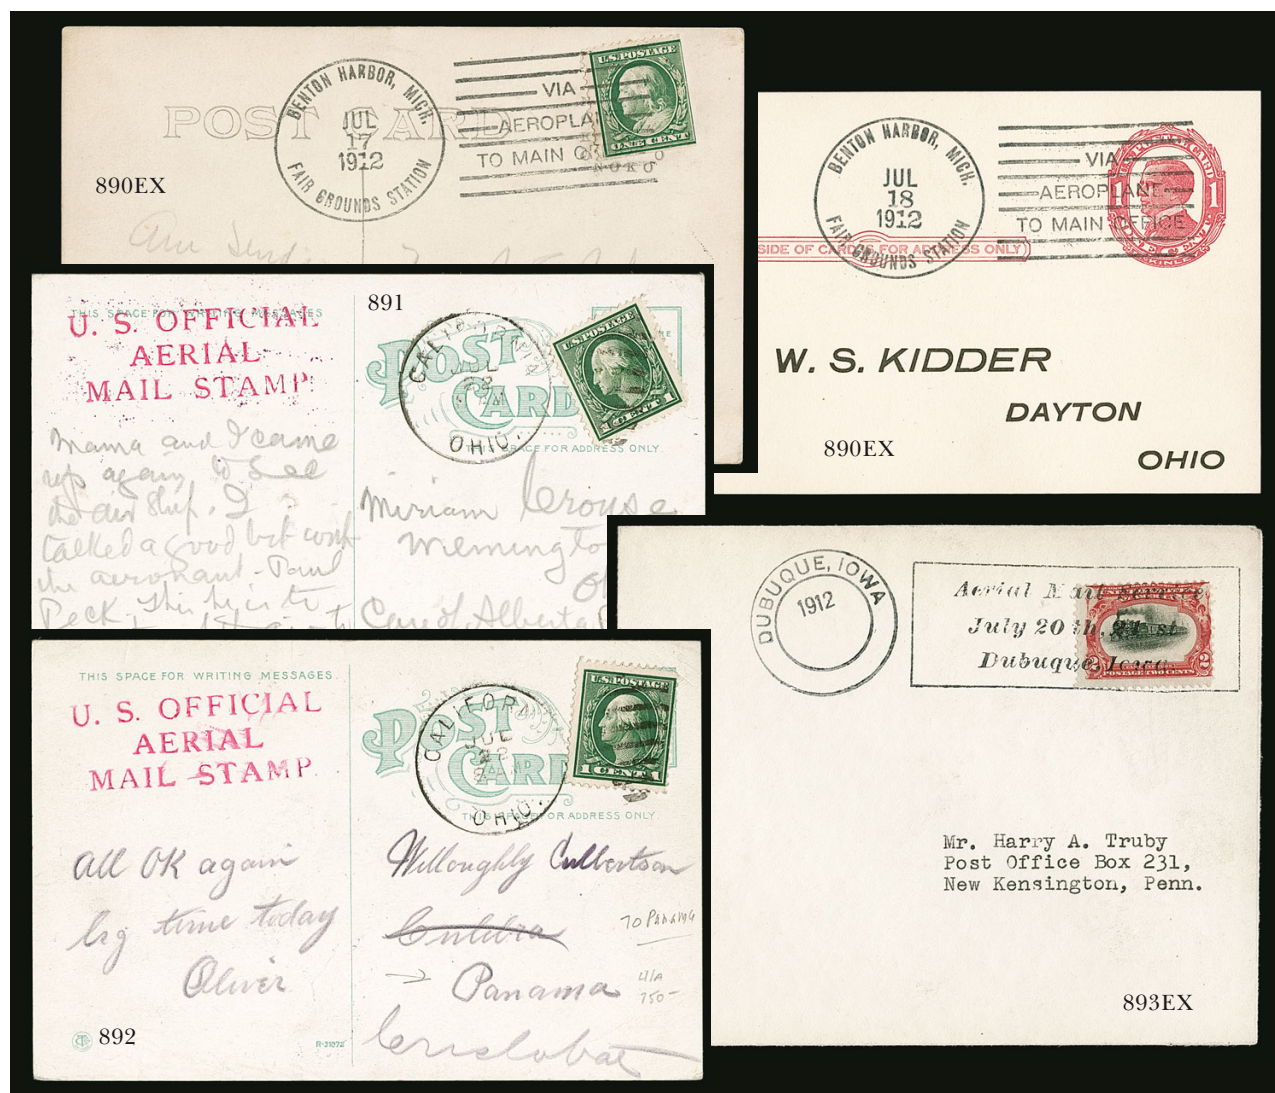 POST CARD
BENTON HARBOR, MICH.
JUL
17
1912
FAIR GROUNDS STATION
VIA
AEROPLA
TO MAIN O
U.S.POSTAGE
ONE 1 CENT
NOKO
890EX
BENTON HARBOR, MICH.
JUL
18
1912
FAIR GROUNDS STATION
VIA
AEROPLANE
TO MAIN OFFICE
1 1
SIDE OF CARD IS FOR ADDRESS ONLY
W. S. KIDDER
DAYTON
OHIO
890EX
THIS SPACE FOR WRITING MESSAGES
U. S. OFFICIAL
AERIAL
MAIL STAMP
891
POST
CARD
CALIFORNIA
OHIO.
U.S.POSTAGE
1 CENT 1
THIS SPACE FOR ADDRESS ONLY.
Mama and I came
up again to see
the air ship. I
talked a good bit with
the aeronaut - Paul
Peck. This he is to
Miriam Crouse
Care of Alberta
DUBUQUE, IOWA
1912
Aerial Mail Service
July 20th, 21st
Dubuque, Iowa
2 2
POSTAGE TWO CENTS
Mr. Harry A. Truby
Post Office Box 231,
New Kensington, Penn.
893EX
THIS SPACE FOR WRITING MESSAGES.
U. S. OFFICIAL
AERIAL
MAIL STAMP
POST
CARD
CALIFORN
JUL
22
OHIO.
U.S.POSTAGE
1 CENT 1
THIS SPACE FOR ADDRESS ONLY.
All OK again
big time today
Oliver
Willoughby Culbertson
Culebra
TO PANAMA
Panama
U/A
750-
Cristobal
892
R-21072